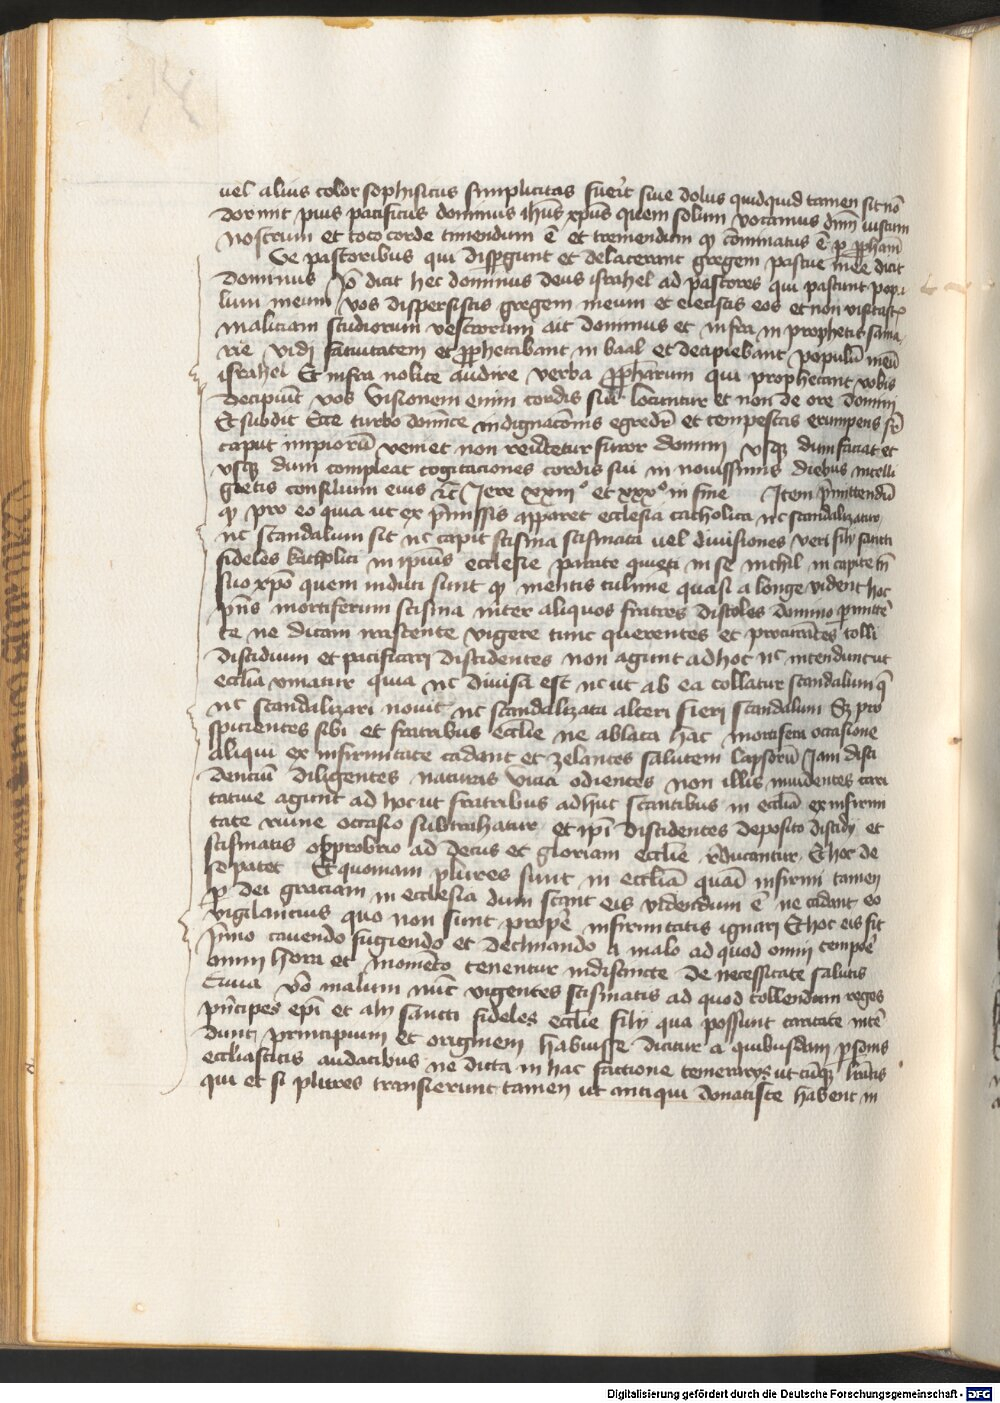 uel alius color sophisticus simplicitas fuerit siue dolus quidquid tamen sit nō
dormit pius pacificus dominus ihūs xp̄us quem solum vocamus dnm̄ iustum
nostrum et toto corde timendum ē et tremendum qꝫ cōminatus ē ꝑ ꝓpham̄
Ve pastoribus qui disꝑgunt et delacerant gregem pascue mee dicit
dominus Jō dicit hec dominus deus israhel ad pastores qui pascunt popu
lum meum vos dispersistis gregem meum et eiecistis eos et non visitastꝭ
maliciam studiorum vestrorum ait dominus et infra in prophetis sama
rie vidi fatuitatem et ꝓphetabant in baal et decipiebant populū meū
israhel Et infra nolite audire verba ꝓpharum qui prophetant vobis
decipiūt vos visionem enim cordis sui locuntur et non de ore domini
Et subdit Ecce turbo dominice indignacōnis egredr̄ et tempestas erumpens sr̄
caput impiorū veniet non reūtetur furor domini vsqꝫ dum faciat et
vsqꝫ dum compleat cogitaciones cordis sui in nouissimis diebus intelli
getis consilium eius rc̄ Jere xxiii° et xxx° in fine Item p̄mittendū
qꝫ pro eo quia ut ex p̄missis apparet ecclesia catholica nc scandalizatur
nc scandalum sit nc capit scisma scismata uel diuisiones veri filij sancti
fideles katholici in ipius ecclesie pietate quieti in se nichil in capite tn̄
suo xpō quem induti sunt qꝫ mentis culmine quasi a longe vident hoc
pn̄s mortiferum scisma inter aliquos fratres discoles domino ꝑmitte
te ne dicam irascente vigere tunc querentes et procurātes tolli
discidium et pacificari discidentes non agunt ad hoc nc intendunt ut
ecclīa vniatur quia nc diuisa est nc ut ab ea tollatur scandalum q̄
nc scandalizari nouit nc scandalizata alteri fieri scandalum Sꝫ pro
spicientes sibi et fratribus ecclīe ne ablata hac mortifera occasione
aliqui ex infirmitate cadant et zelantes salutem lapsorū Jam disci
denciū diligentes naturas vicia odientes non illis inuidentes cari
tatiue agunt ad hoc ut fratribus adhuc stantibus in ecclīa ex infirmi
tate ruine occasio subtrahatur et ipī discidentes deposito discidij et
scismatis obprobrio ad decus et gloriam ecclīe reducantur Et hoc de
se patet Et quoniam plures sunt in ecclīa quāi infirmi tamen
ꝑ dei graciam in ecclesia dum stant eis videndum ē ne cadant eo
vigilancius quo non sunt proprē infirmitatis ignari Et hoc eis fit
Jmmo cauendo fugiendo et declinando a malo ad quod omni tempore
omni hora et momēto tenentur indistincte de necessitate salutis
Circa vō malum nūc vigentes scismatis ad quod tollendum reges
p̄ncipes epī et alij sancti fideles ecclīe filij qua possunt caritate intē
dunt principium et originem habuisse dicitur a quibusdam ꝑsonis
eccliasticis audacibus ne dicta in hac factione temerarys ut cūqꝫ lr̄atis
qui et si plures transierunt tamen ut antiqui donatiste habent in
Digitalisierung gefördert durch die Deutsche Forschungsgemeinschaft - DFG